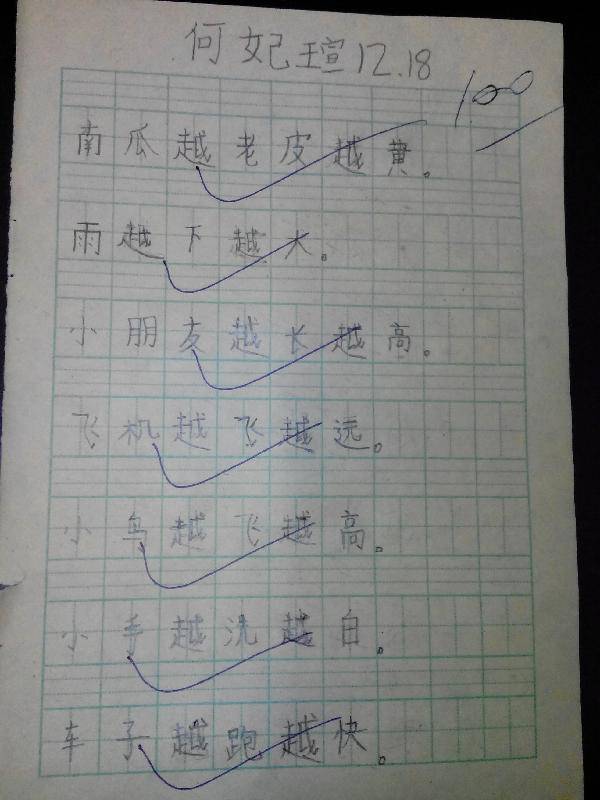 何妃瑄 12.18
100
南瓜越老皮越黄。
雨越下越大。
小朋友越长越高。
飞机越飞越远。
小鸟越飞越高。
小手越洗越白。
车子越跑越快。